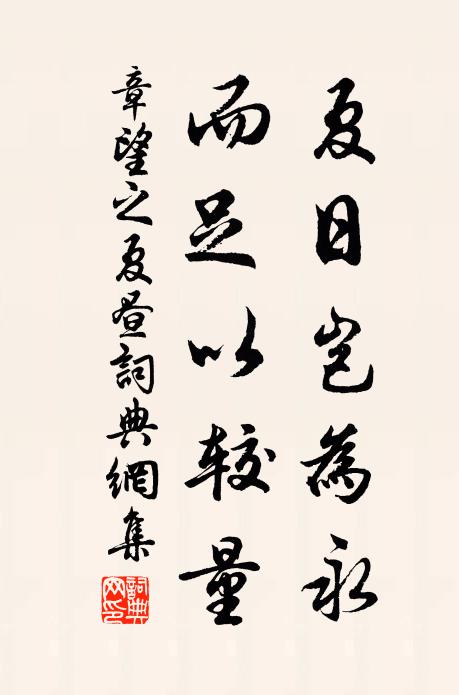 夏日豈為永
而足以較量
章望之夏晝詞典網集
詞典網印